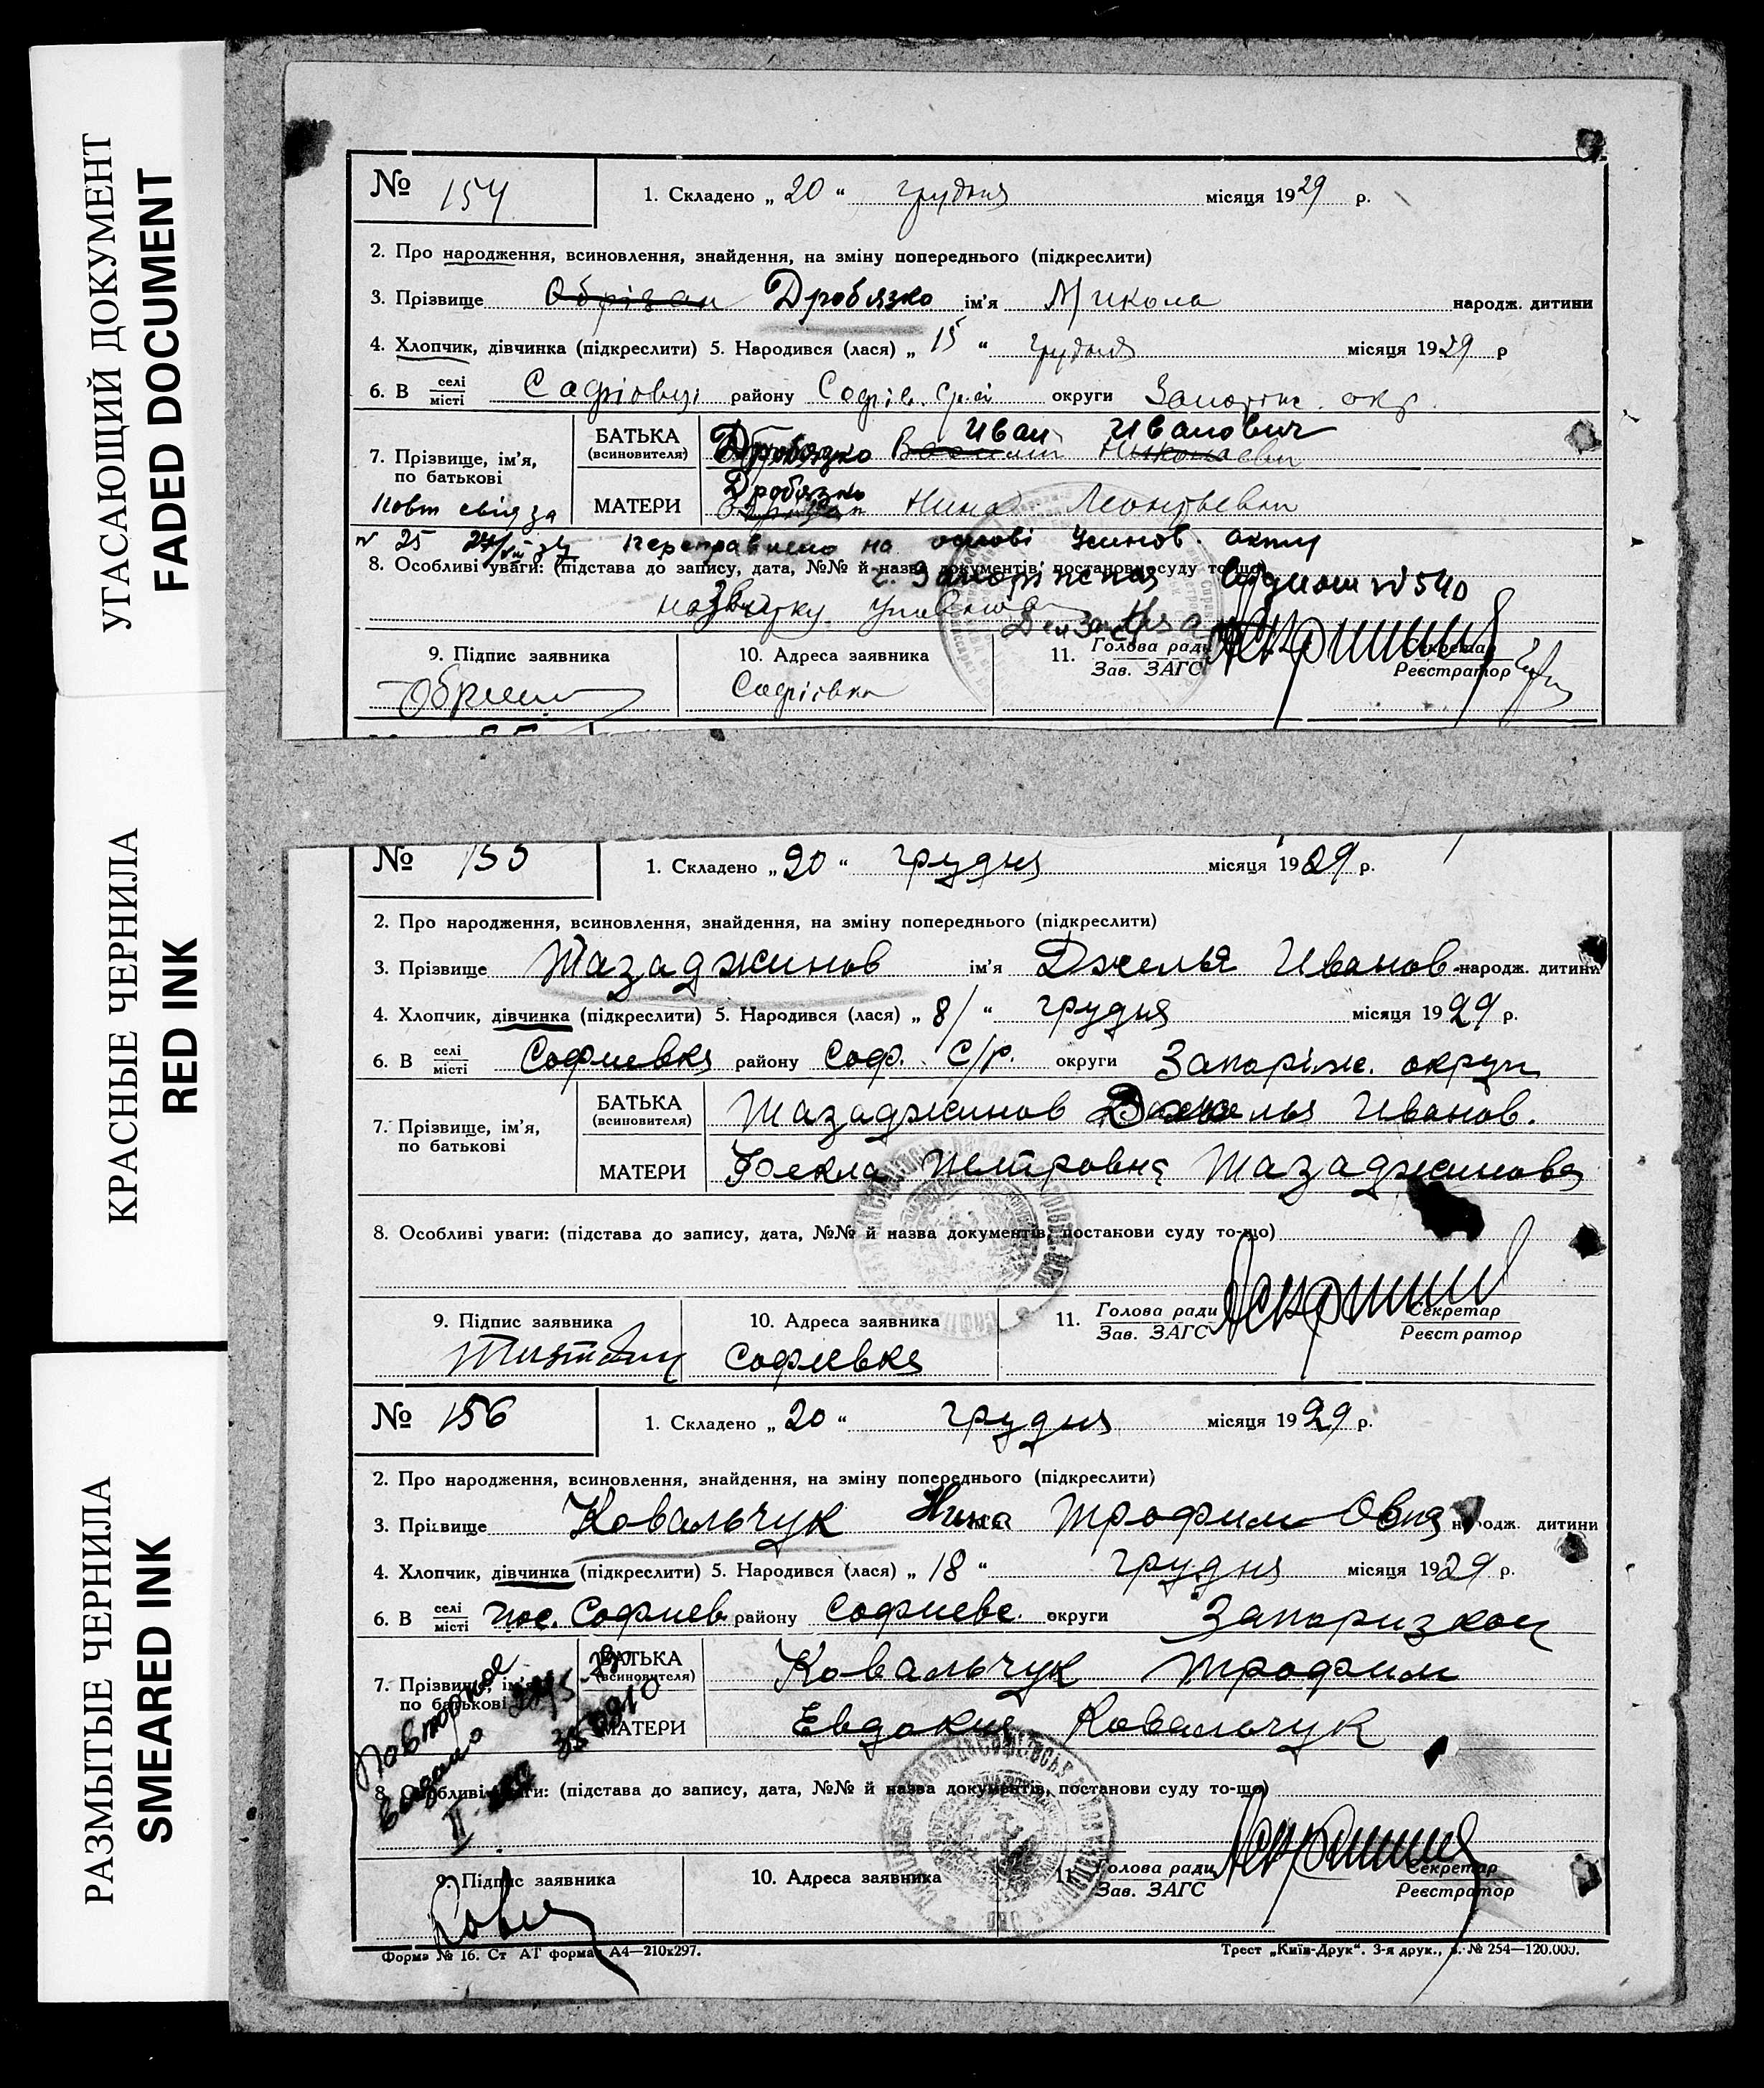 УГАСАЮЩИЙ ДОКУМЕНТ
FADED DOCUMENT
КРАСНЫЕ ЧЕРНИЛА
RED INK
РАЗМЫТЫЕ ЧЕРНИЛА
SMEARED INK
№ 154
1. Складено „ 20 “ грудня місяця 1929 р.
2. Про народження, всиновлення, знайдення, на зміну попереднього (підкреслити)
3. Прізвище Обрізан Дробязко ім'я Микола народж. дитини
4. Хлопчик, дівчинка (підкреслити) 5. Народився (лася) „ 15 “ грудня місяця 1929 р
6. В селі місті району округи Запоріж. окр.
7. Прізвище, ім'я, по батькові
БАТЬКА (всиновителя) Дробязко Иван Иванович
МАТЕРИ Дробязко Нина Леонтьевна
№ 25 на основі Усинов. акту
8. Особливі уваги: (підстава до запису, дата, №№ й назва документів, постанови суду то-що) № 540
9. Підпис заявника
10. Адреса заявника
11. Голова ради Зав. ЗАГС
Секретар Реєстратор
№ 155
1. Складено „ 20 “ грудня місяця 1929 р.
2. Про народження, всиновлення, знайдення, на зміну попереднього (підкреслити)
3. Прізвище Тазаджинов ім'я Джелья Иванов народж. дитини
4. Хлопчик, дівчинка (підкреслити) 5. Народився (лася) „ 8 “ грудня місяця 1929 р.
6. В селі місті Софиевка району Соф. С/р. округи Запоріж. округи
7. Прізвище, ім'я, по батькові
БАТЬКА (всиновителя) Тазаджинов Иванов.
МАТЕРИ Фекла Петровна Тазаджинова
8. Особливі уваги: (підстава до запису, дата, №№ й назва документів, постанови суду то-що)
9. Підпис заявника
10. Адреса заявника
11. Голова ради Зав. ЗАГС
Секретар Реєстратор
Софиевка
№ 156
1. Складено „ 20 “ грудня місяця 1929 р.
2. Про народження, всиновлення, знайдення, на зміну попереднього (підкреслити)
3. Прізвище Ковальчук Нина Трофимовна народж. дитини
4. Хлопчик, дівчинка (підкреслити) 5. Народився (лася) „ 18 “ грудня місяця 1929 р.
6. В селі місті пос. Софиев. району Софиевс. округи Запоризкои
7. Прізвище, ім'я, по батькові
БАТЬКА (всиновителя) Ковальчук Трофим
МАТЕРИ Евдокия Ковальчук
Повторное
выдано
8. Особливі уваги: (підстава до запису, дата, №№ й назва документів, постанови суду то-що)
9. Підпис заявника
10. Адреса заявника
11. Голова ради Зав. ЗАГС
Секретар Реєстратор
Форма № 16. Ст АТ формат А4—210x297.
Трест „Київ-Друк“. 3-я друк., з. № 254—120.000.